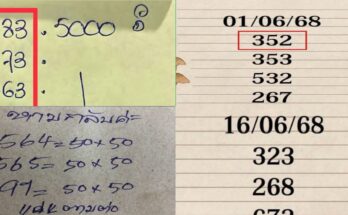 83. 5000 ธิ
73.
63.
564=50×50
565=50×50
97=50×50
01/06/68
352
353
532
267
16/06/68
323
268